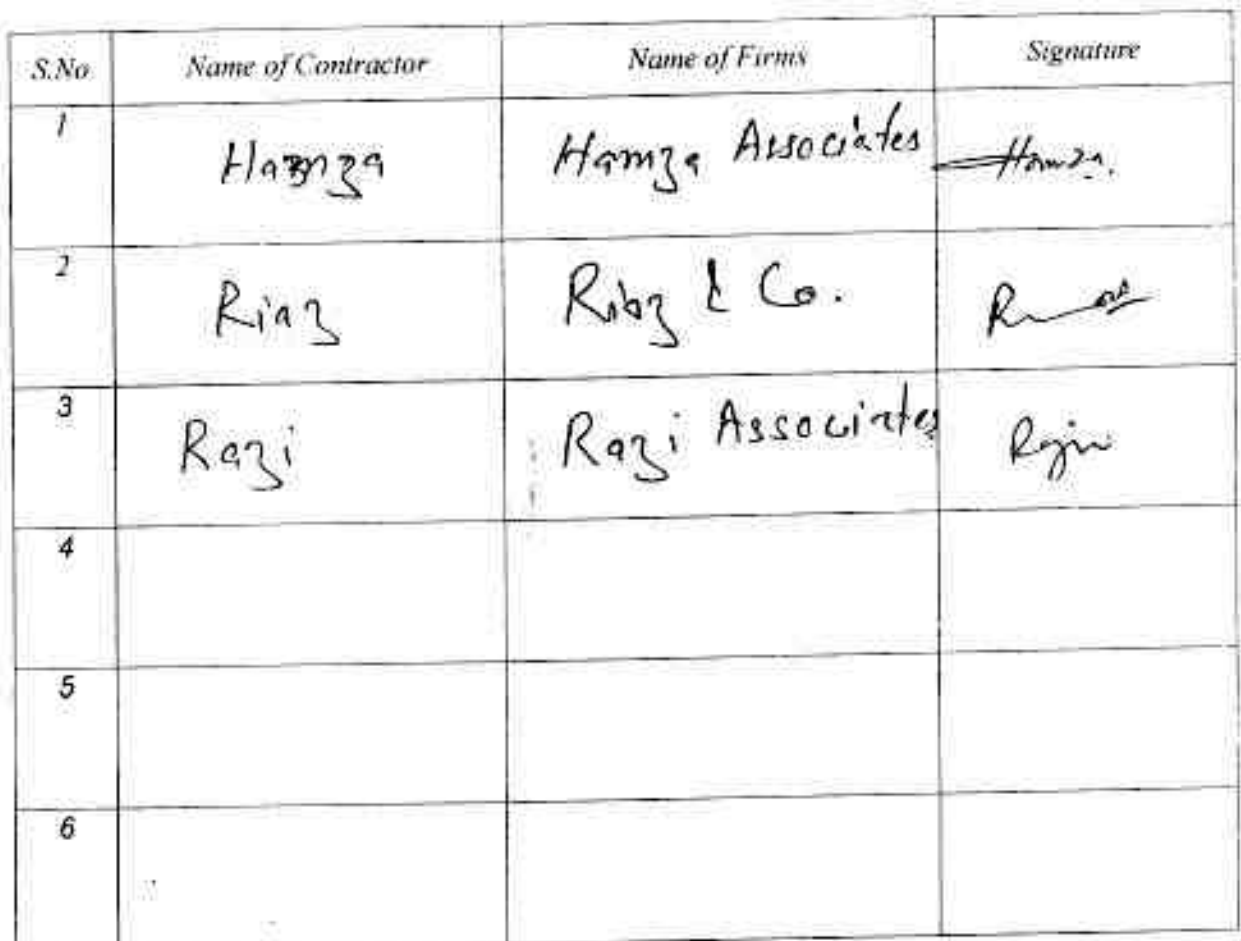 S.No Name of Contractor Name of Firms Signature
1 Hamza Hamza Associates Hamza.
2 Riaz & Co.
3 Razi Razi Associates
4
5
6